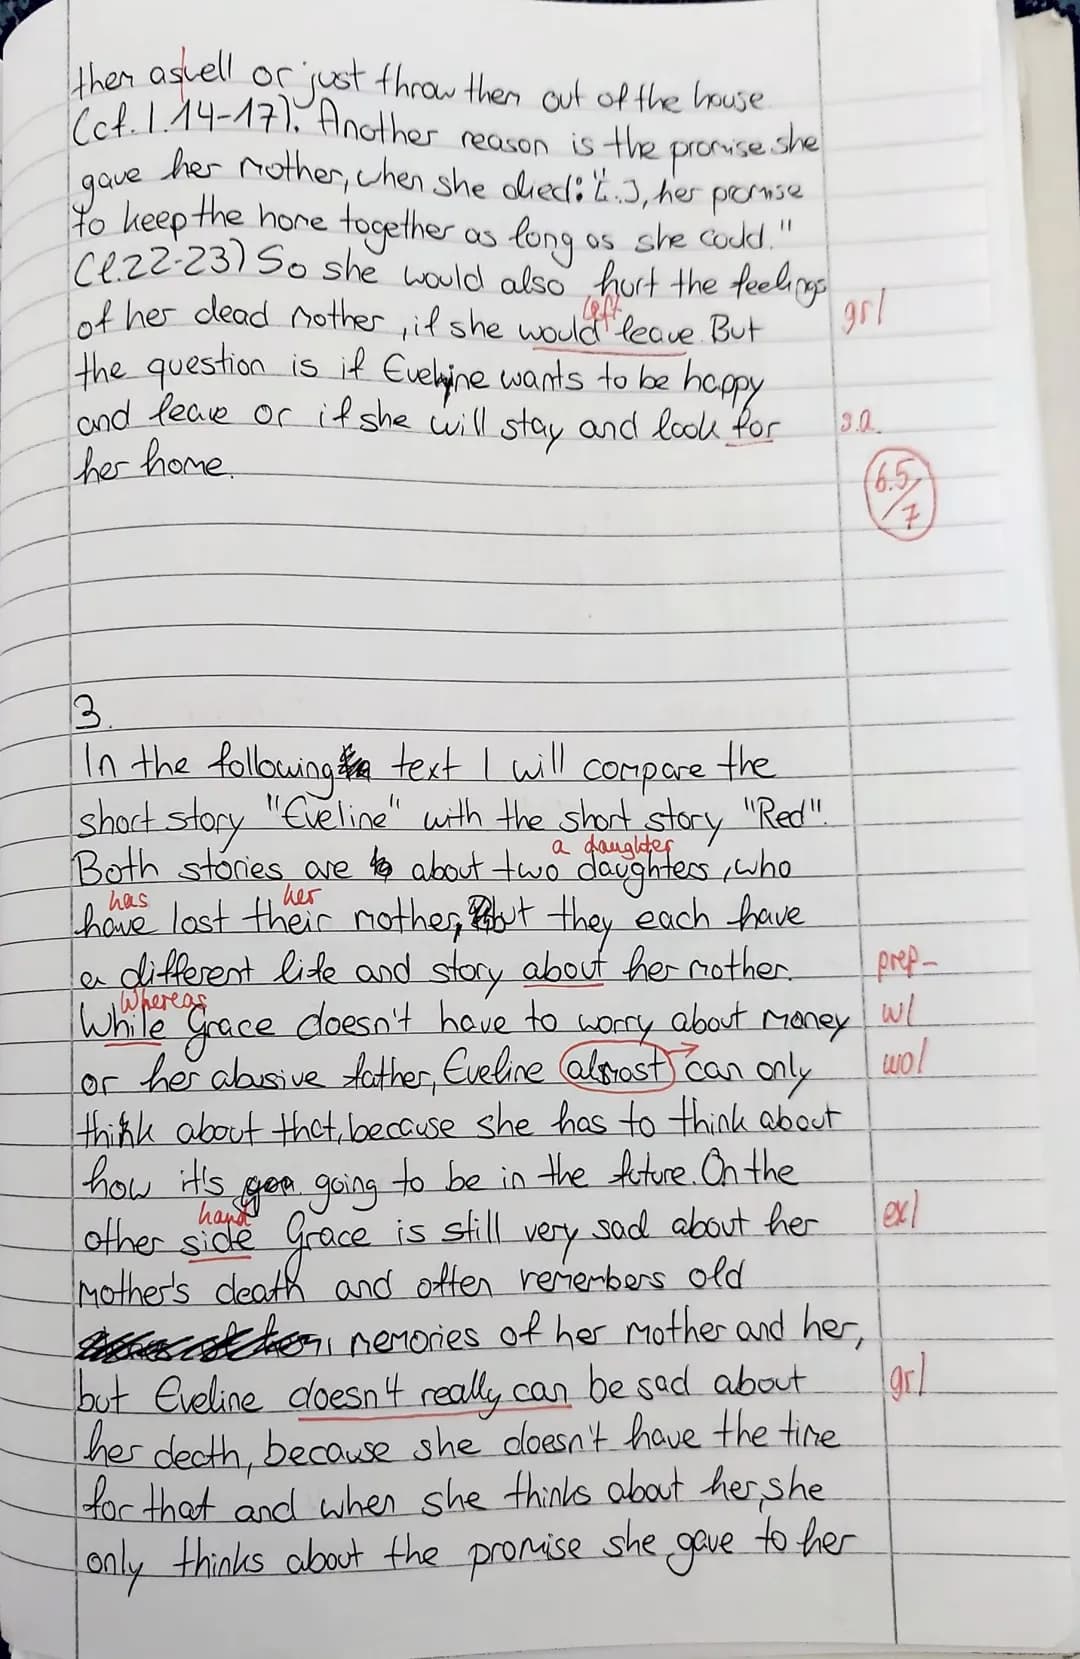 them aswell or just throw them out of the house
(cf. l. 14-17). Another reason is the promise she
gave her mother, when she died: "[...], her promise
to keep the home together as long as she could."
(l.22-23) So she would also hurt the feelings
left
of her dead mother, if she would leave. But gr/
the question is if Eveline wants to be happy
and leave or if she will stay and look for s.a.
her home.
6.5/7
3.
In the following text I will compare the
short story "Eveline" with the short story "Red".
a daughter
Both stories are about two daughters, who
has her
have lost their mother, but they each have
a different life and story about her mother. prep-
Whereas
While Grace doesn't have to worry about money w/
or her abusive father, Eveline almost can only wo/
think about that, because she has to think about
how it's going to be in the future. On the
hand
other side Grace is still very sad about her ex/
mother's death and often remembers old
memories of her mother and her,
but Eveline doesn't really can be sad about gr/
her death, because she doesn't have the time
for that and when she thinks about her, she
only thinks about the promise she gave to her